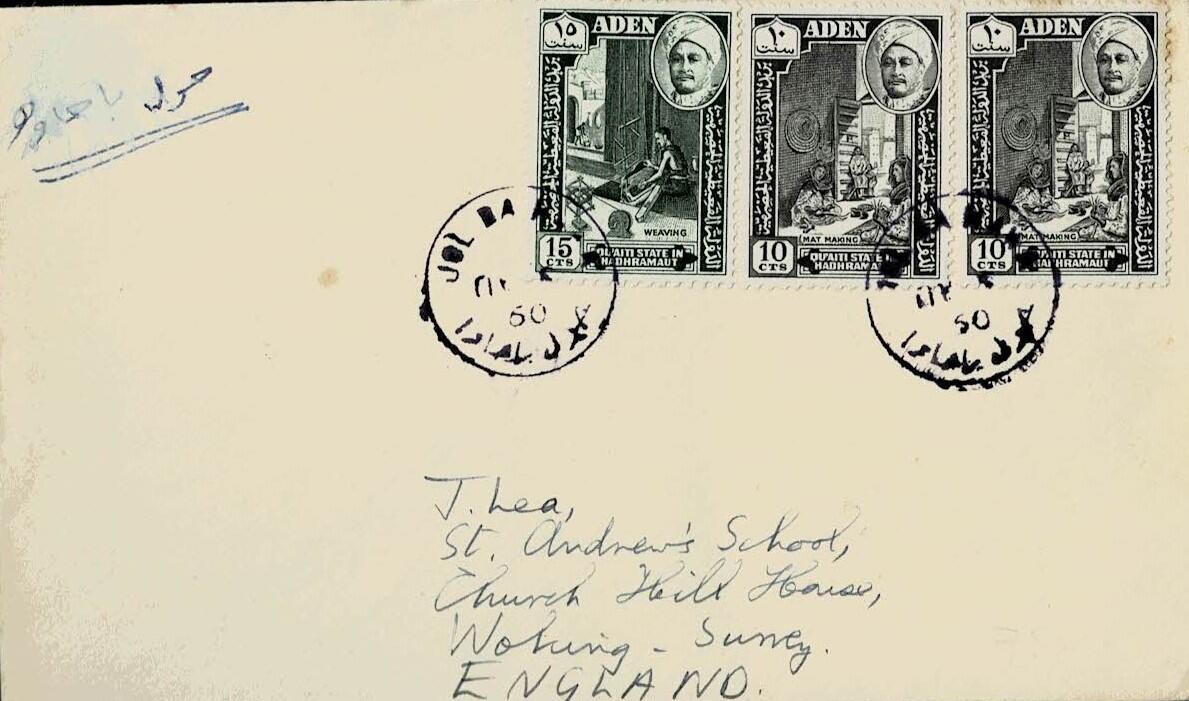 جول باحاوه
١٥
سنت
ADEN
WEAVING
15
CTS
QU'AITI STATE IN
HADHRAMAUT
١٠
سنت
ADEN
MAT MAKING
10
CTS
QU'AITI STATE IN
HADHRAMAUT
١٠
سنت
ADEN
MAT MAKING
10
CTS
QU'AITI STATE IN
HADHRAMAUT
JOL BA
60
60
T. Lea,
St. Andrew's School,
Church Hill House,
Woking - Surrey.
ENGLAND.